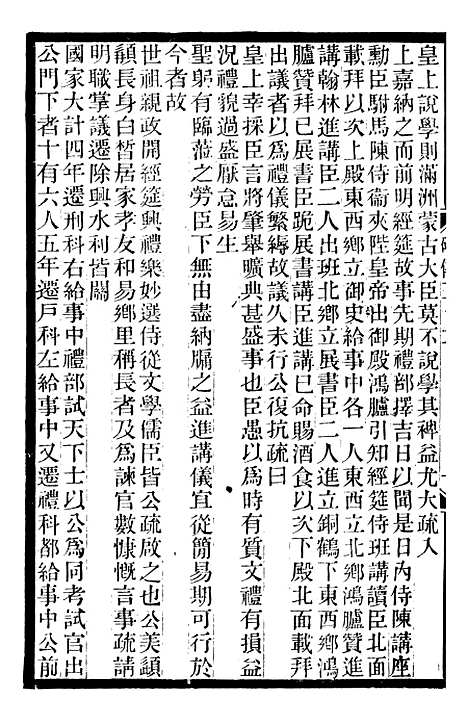 皇上說學則滿洲蒙古大臣莫不說學其裨益尤大疏入
上嘉納之而前明經筵故事先期禮部擇吉日以聞是日內侍陳講座
勳臣駙馬陳侍衞夾陛皇帝出御殿鴻臚引知經筵侍班講讀臣北面
載拜以次上殿東西鄉立御史給事中各一人東西立北鄉鴻臚贊進
講翰林進講臣二人出班北鄉立展書臣二人進立銅鶴下東西鄉鴻
臚贊已展書臣跪展書講臣進講已命賜酒食以次下殿北面載拜
出議者以爲禮儀繁縟故議久未行公復抗疏曰
皇上幸採臣言將肇舉曠典甚盛事也臣愚以爲時有質文禮有損益
況禮貌過盛厭怠易生
聖躬有臨蒞之勞臣下無由盡納牖之益進講儀宜從簡易期可行於
今者故
世祖親政開經筵興禮樂妙選侍從文學儒臣皆公疏啟之也公美鬚
顏長身白皙居家孝友和易鄉里稱長者及爲諫官數慷慨言事疏請
明職掌議遷除興水利皆關
國家大計四年遷刑科右給事中禮部試天下士以公爲同考試官出
公門下者十有六人五年遷戶科左給事中又遷禮科都給事中公前